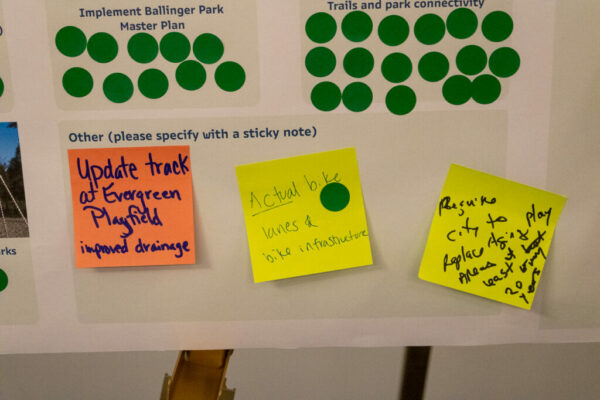 Implement Ballinger Park
Master Plan
Trails and park connectivity
Other (please specify with a sticky note)
Update track
at Evergreen
Playfield
improved drainage
Actual bike
lanes &
bike infrastructure
Require
city to
Replace Aging play
Areas at
least
20
years
arks